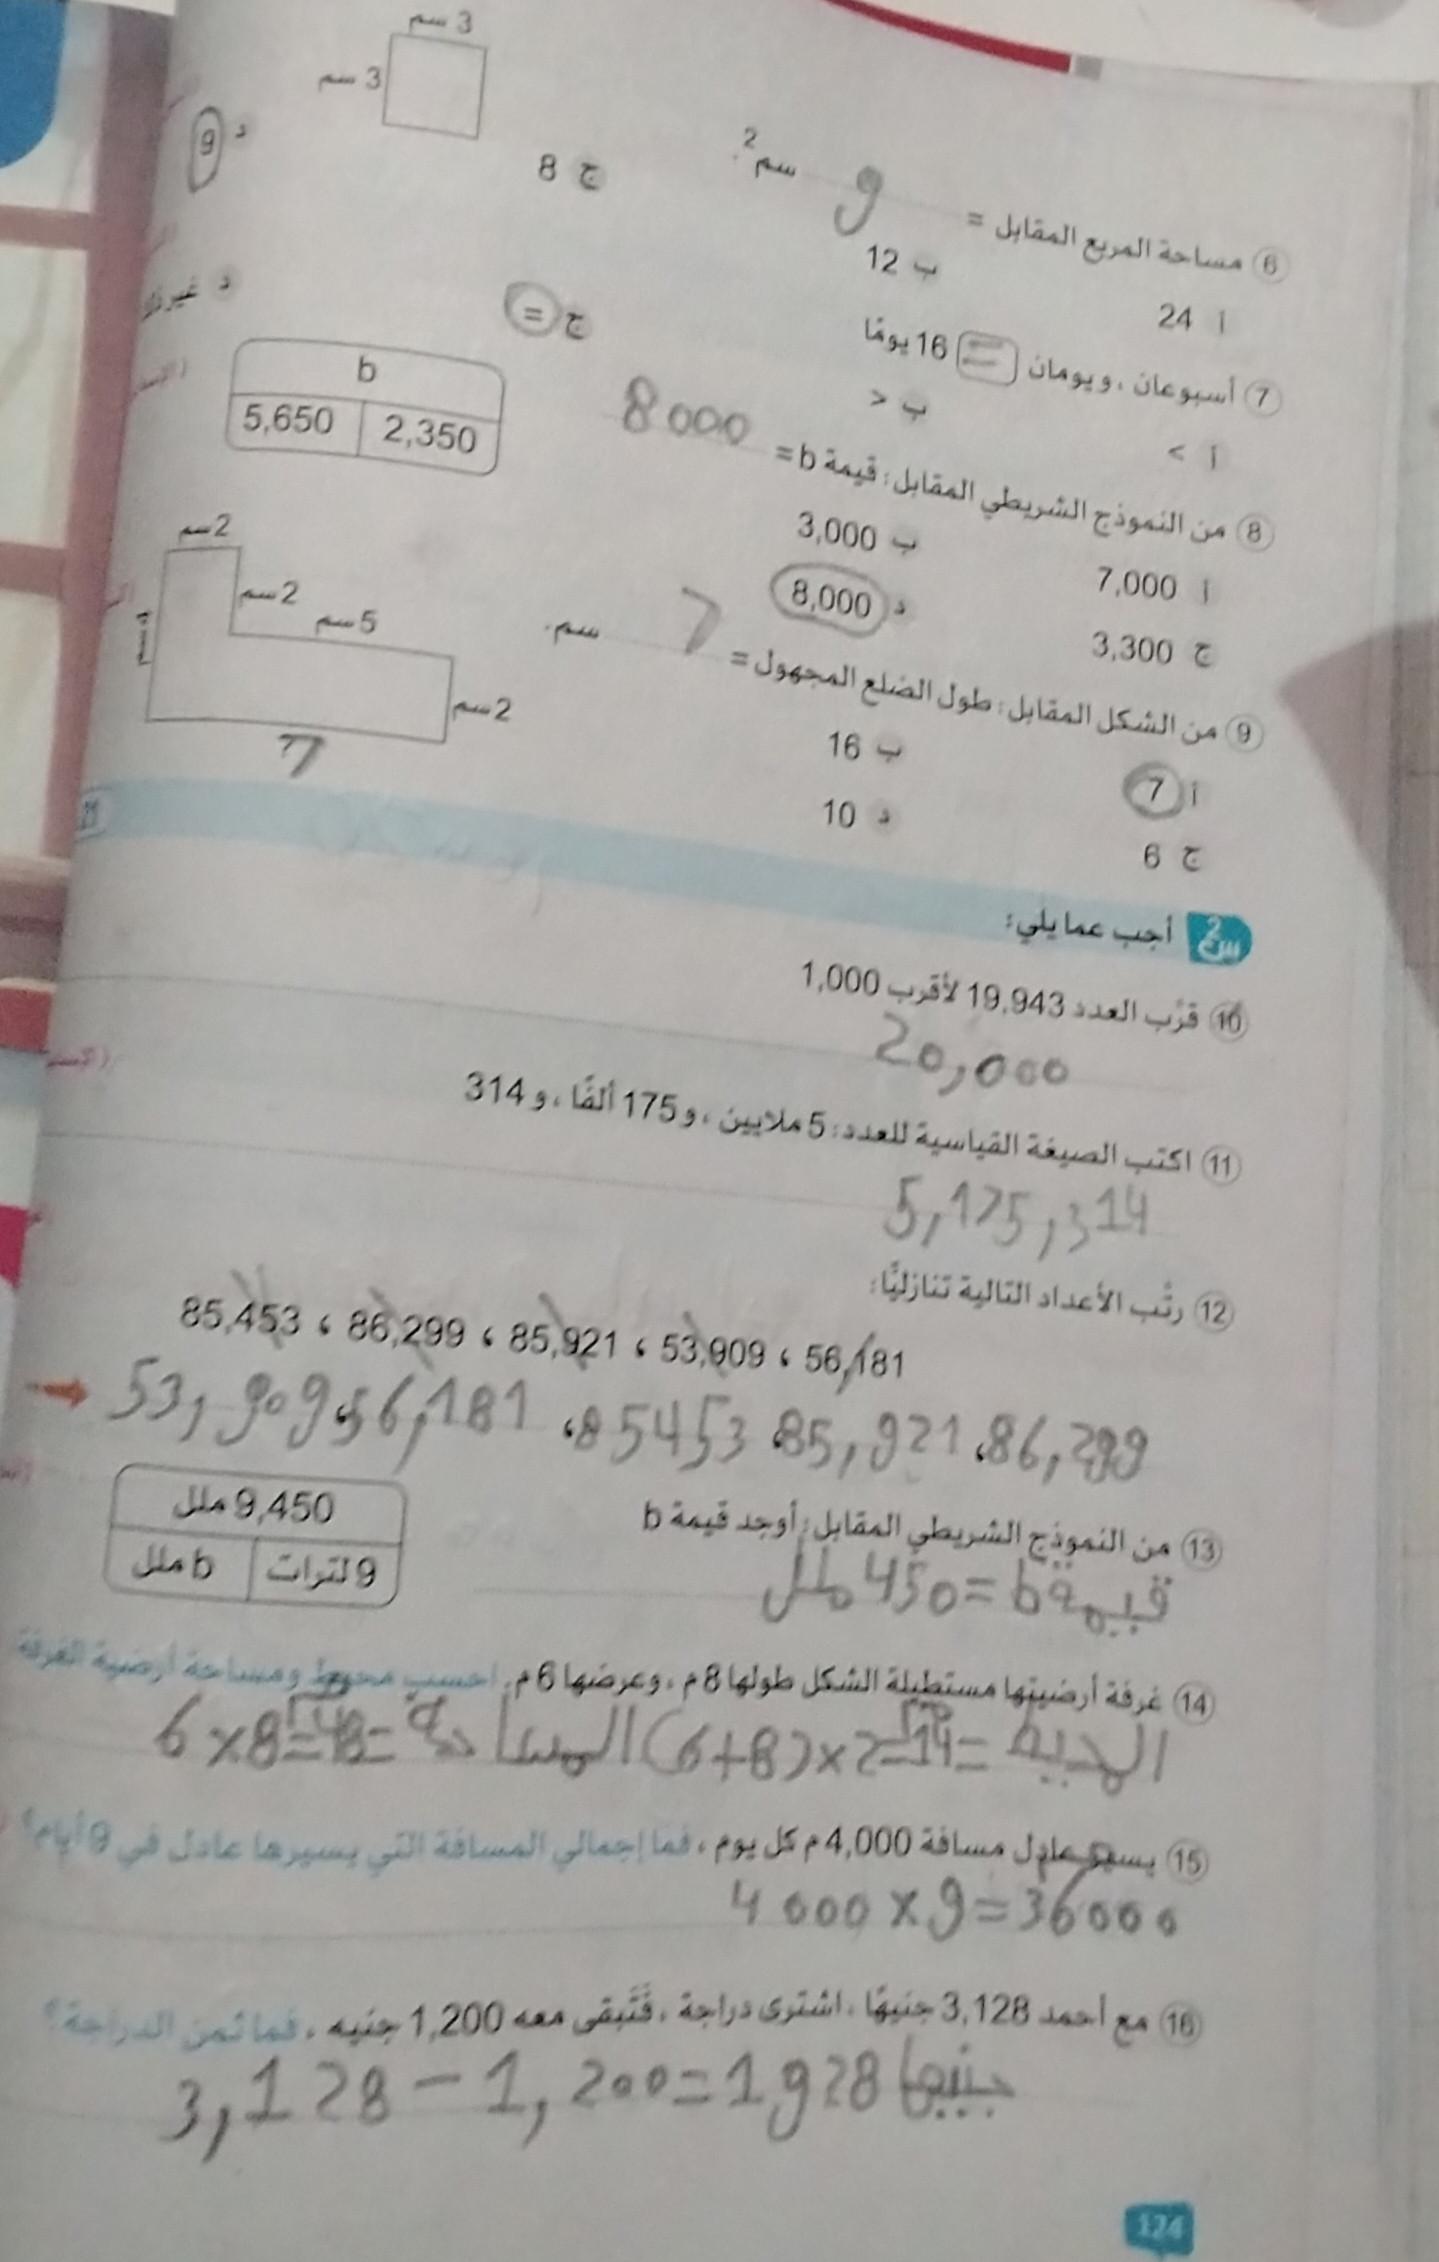 3 سم
3 سم
6 مساحة المربع المقابل = 9 سم2.
أ 24 ب 12 ج 8 د 9
7 أسبوعان، ويومان = 16 يومًا
أ > ب < ج = د
8 من النموذج الشريطي المقابل: قيمة b = 8000
b
5,650 2,350
أ 7,000 ب 3,000
ج 3,300 د 8,000
9 من الشكل المقابل: طول الضلع المجهول = 7 سم.
2 سم
2 سم
5 سم
2 سم
7
أ 7 ب 16
ج 6 د 10
س2 أجب عما يلي:
10 قرِّب العدد 19,943 لأقرب 1,000
20,000
11 اكتب الصيغة القياسية للعدد: 5 ملايين، و 175 ألفًا، و 314
5,175,314
12 رتِّب الأعداد التالية تنازليًّا:
56,181 ، 53,909 ، 85,921 ، 86,299 ، 85,453
86,299 ، 85,921 ، 85453 ، 56,181 ، 53,909
13 من النموذج الشريطي المقابل: أوجد قيمة b
9,450 ملل
9 لترات b ملل
قيمة b = 450 ملل
14 غرفة أرضيتها مستطيلة الشكل طولها 8 م، وعرضها 6 م. احسب محيط ومساحة أرضية الغرفة
(6+8)×2=14=
المساحة = 48 = 6×8
15 يسير عادل مسافة 4,000 م كل يوم، فما إجمالي المسافة التي يسيرها عادل في 9 أيام؟
4000×9=36000
16 مع أحمد 3,128 جنيهًا، اشترى دراجة، فتبقى معه 1,200 جنيه، فما ثمن الدراجة؟
3,128-1,200=1928
124